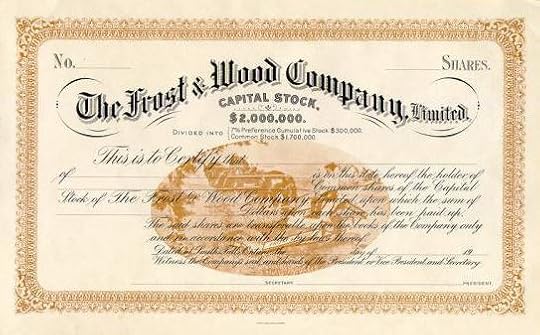 No. SHARES.
The Frost & Wood Company, Limited.
CAPITAL STOCK,
$2,000,000.
DIVIDED INTO 7% Preference Cumulative Stock $300,000.
Common Stock $1,700,000.
This is to Certify that
is on this date hereof the holder of
Common shares of the Capital
Stock of The Frost & Wood Company Limited, upon which the sum of
Dollars upon each share has been paid up.
The said shares are transferable upon the books of the Company only
and in accordance with the by-laws thereof.
Dated at Smith's Falls, Ontario, the day of 19
Witness the Company's seal, and hands of the President or Vice President and Secretary
SECRETARY PRESIDENT